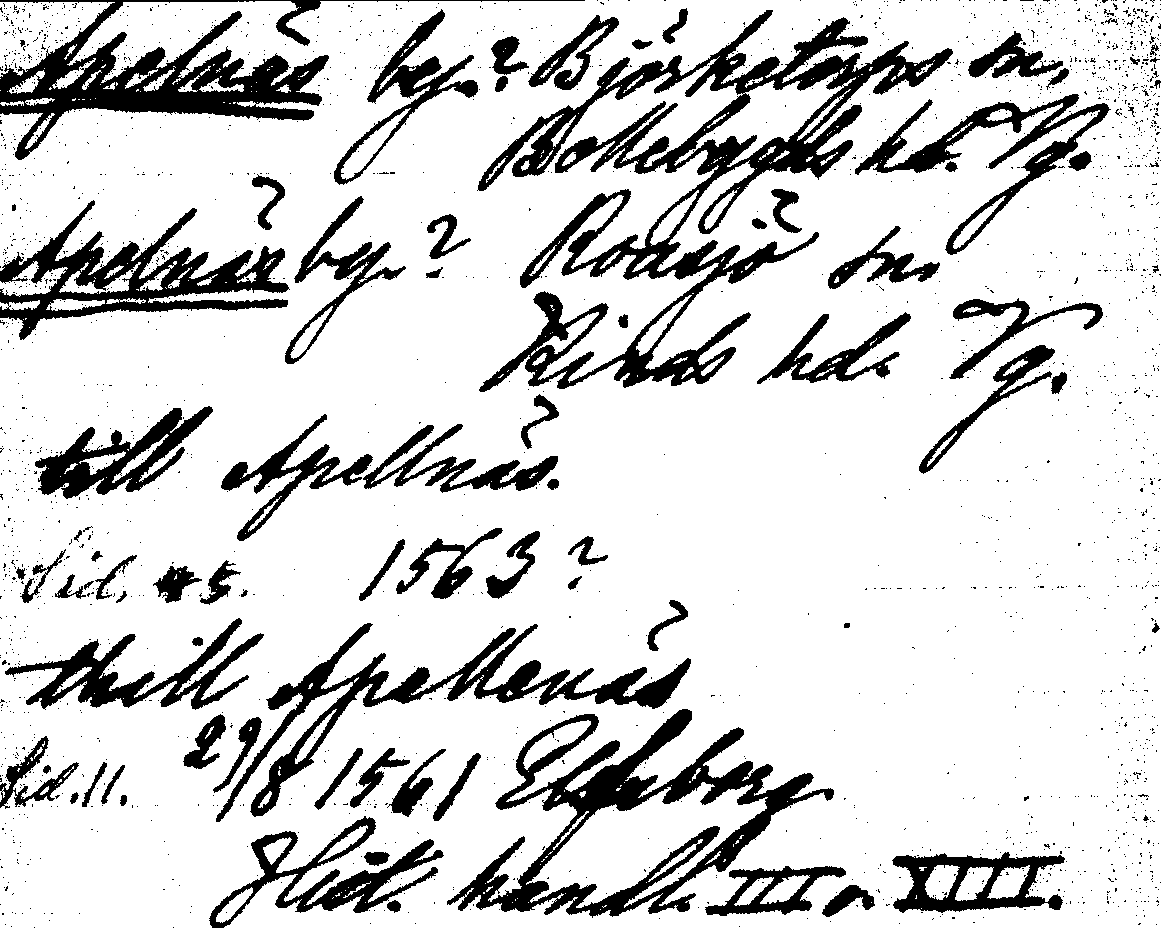 Apelnäs by.? Björketorps sn,
Bollebygds hd. Vg.
Apelnär by.? Roasjö sn.
Kinds hd. Vg.
till Apellnäs.
Sid. 45. 1563?
thill Apellenäs
Sid. 11. 29/8 1561 Elfsborg.
Hist. handl. III o. XIII.